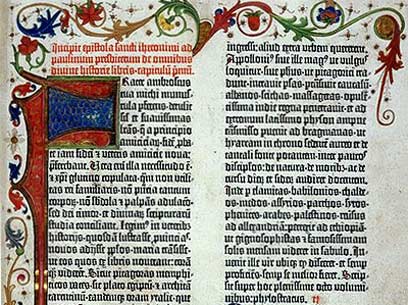 Incipit epistola sancti iheronimi ad
paulinum presbiterum de omnibus
divine historie libris. capitulū pmū.
Frater ambrosius
tua michi munus-
cula pferens. detulit
sil et suavissimas
lras. q̄ a principio
amicitiaȝ. fidē p̄ba-
te iam fidei et veteris amicicie nova:
pferebant. Vera em̄ illa necessitudo ē.
et xpī glutino copulata. qm̄ non utili-
tas rei familiaris. nō pn̄tia tantum
corpoȝ. nō sbdola et palpās adulacō.
sed dei timor. et divinaȝ scripturarum
studia conciliant. Legim̄ in veterib̄
historijs. quosdā lustrasse, pvincias.
novos adisse pplos. maria trāsisse.
ut eos quos ex libris noverant: corā
qȝ viderēt. Sicut pitagoras memphi-
ticos vates. sic plato egiptū. et architā
tarentinū. eandemqȝ oram ytalie. que
ingressi: aliud extra urbem quererent.
Appolloni fuit ille magꝰ ut vulgꝰ
loquitur. sive phus. ut pitagorici tra-
dunt. intravit psas. ptnsivit caucasū.
albanos. scithas. massagetas. opulē-
tissima indie regna penetravit: et ad
extremum latissimo physon ampne
trāsmisso puenit ad bragmanas: ut
hyarcam in throno sedentē aureo et de
tantali fonte potantem. inter paucos
discipulos. de natura. de moribȝ. ac de
cursu dieȝ et sideȝ audiret docentem.
Inde p elamitas. babilonios. chalde-
os. medos. assirios. parthos. syros.
phenices. arabes. palestinos. reversus
ad allexandriā: perrexit ad ethiopiā.
ut gignosophistas et famosissimam
solis mensam videret in sabulo. In-
venit ille vir ubiqȝ qd̄ disceret: et semp
proficiens. semp se melior fieret. Scrip-
sit super hoc plenissime octo volumi-
nibus: phylostratus. II